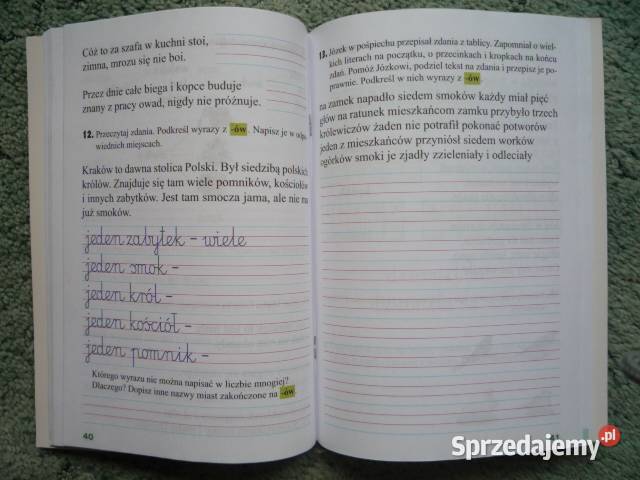 Cóż to za szafa w kuchni stoi,
zimna, mrozu się nie boi.
Przez dnie całe biega i kopce buduje
znany z pracy owad, nigdy nie próżnuje.
12. Przeczytaj zdania. Podkreśl wyrazy z -ów. Napisz je w odpo-
wiednich miejscach.
Kraków to dawna stolica Polski. Był siedzibą polskich
królów. Znajduje się tam wiele pomników, kościołów
i innych zabytków. Jest tam smocza jama, ale nie ma
już smoków.
jeden zabytek - wiele
jeden smok -
jeden król -
jeden kościół -
jeden pomnik -
Którego wyrazu nie można napisać w liczbie mnogiej?
Dlaczego? Dopisz inne nazwy miast zakończone na -ów
40
13. Józek w pośpiechu przepisał zdania z tablicy. Zapomniał o wiel-
kich literach na początku, o przecinkach i kropkach na końcu
zdań. Pomóż Józkowi, podziel tekst na zdania i przepisz je po-
prawnie. Podkreśl w nich wyrazy z -ów
na zamek napadło siedem smoków każdy miał pięć
głów na ratunek mieszkańcom zamku przybyło trzech
królewiczów żaden nie potrafił pokonać potworów
jeden z mieszkańców przyniósł siedem worków
ogórków smoki je zjadły zzieleniały i odleciały
Sprzedajemy.pl